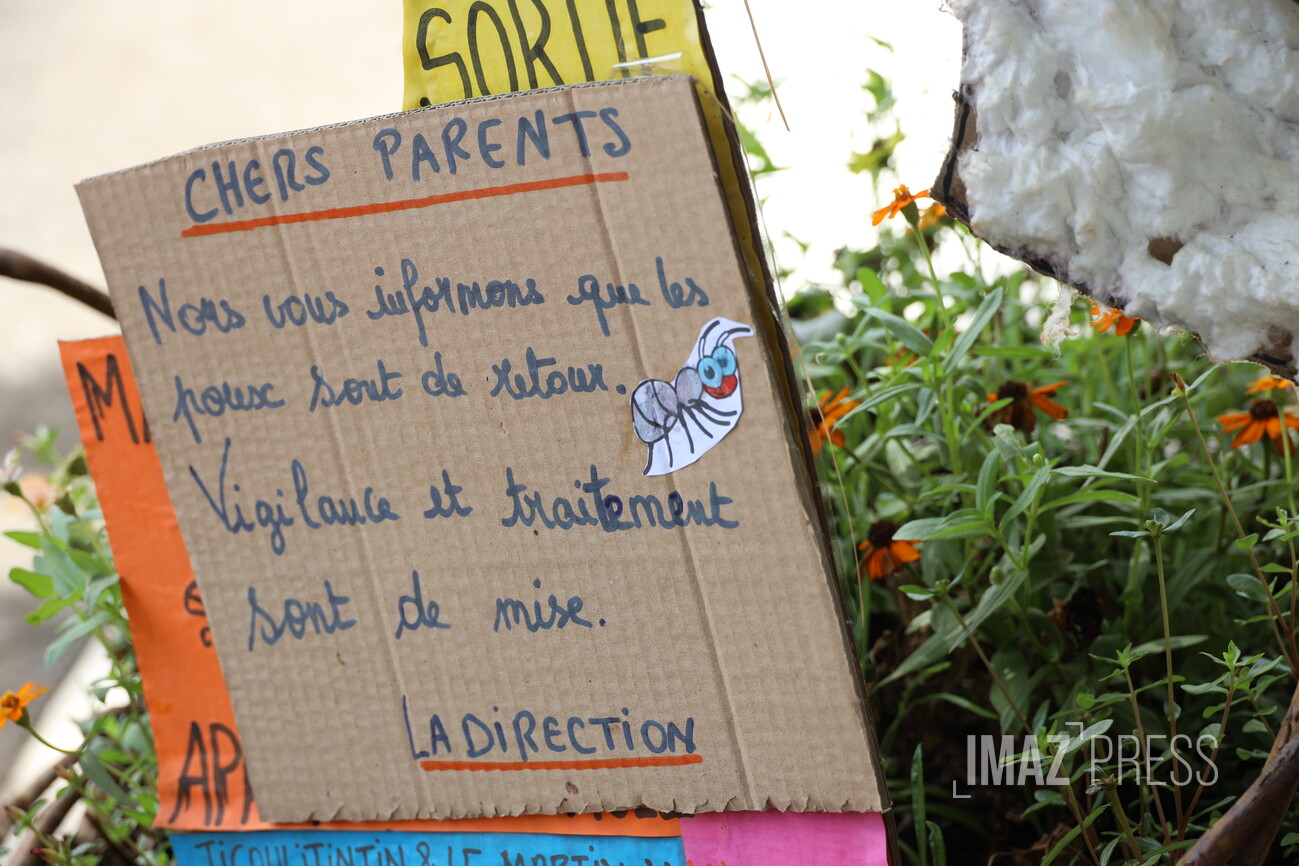 SORTIE
CHERS PARENTS
Nous vous informons que les
poux sont de retour.
Vigilance et traitement
sont de mise.
LA DIRECTION
IMAZ PRESS